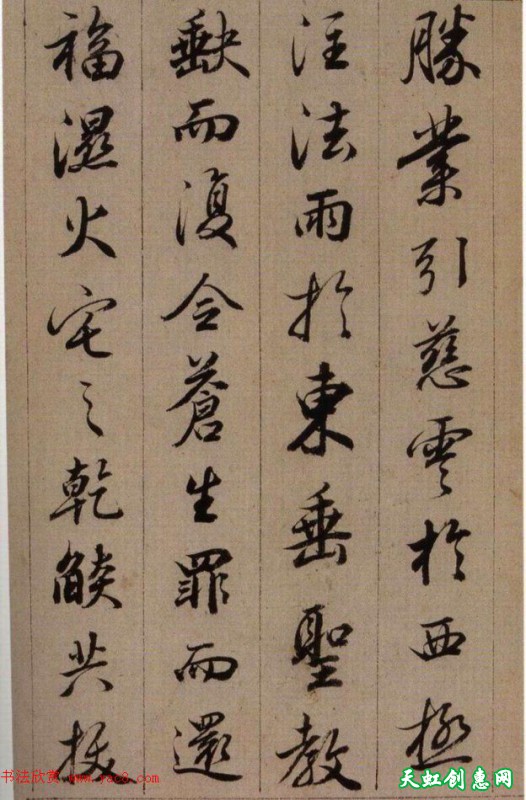 勝業引慈雲於西極
注法雨於東垂聖教
缺而復全蒼生罪而還
福濕火宅之乾燄共拔
书法欣赏 www.yac8.com
天虹创惠网